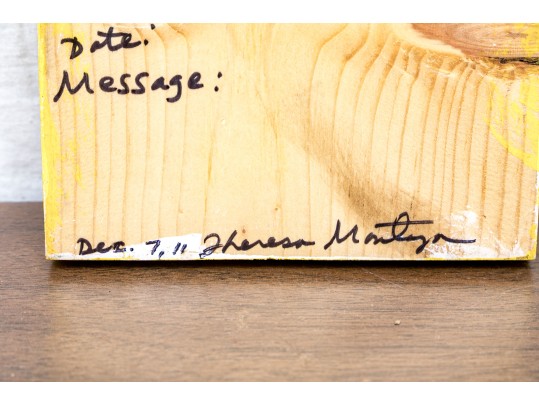 Date:
Message:
Dez. 7, 11 Theresa Montoya